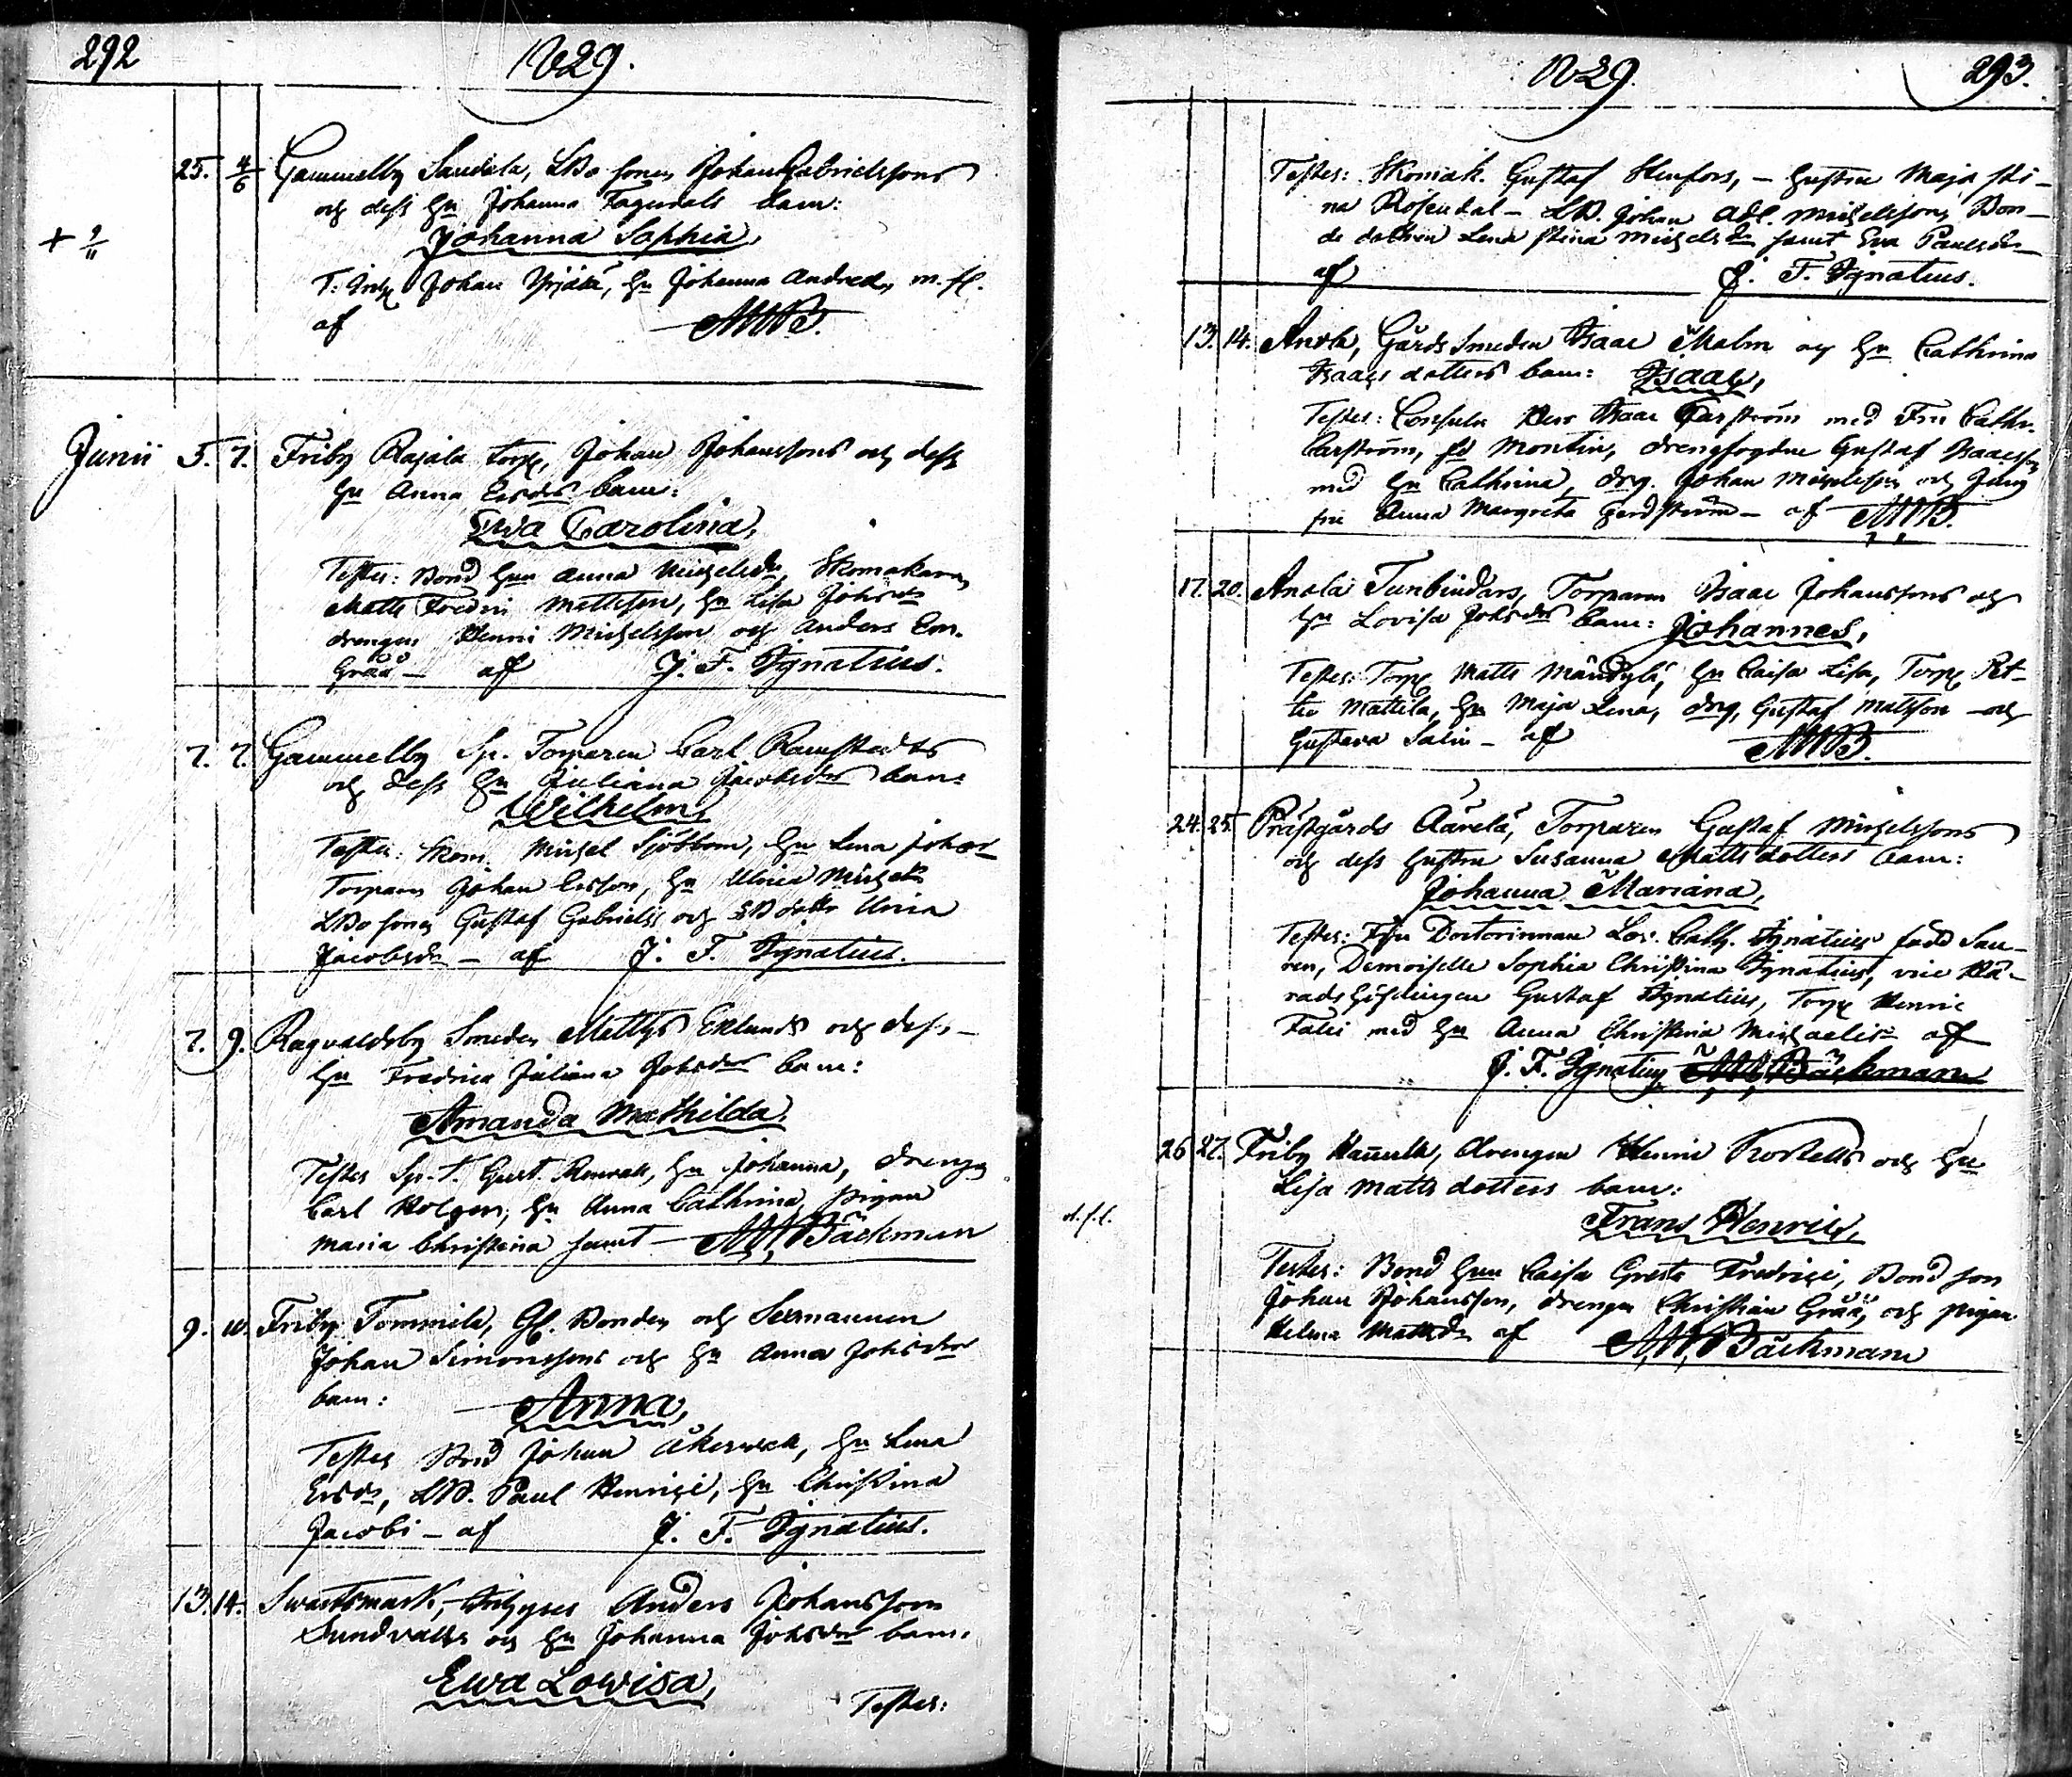 292
1829.
25. 4/6 Gammelby Sandela, LBo sonen Johan Gabrielssons
och dess hu Johanna Fagerdals barn:
Johanna Sophia,
+ 9/11
T: Johan Yrjälä, hu Johanna Andreæ, m. fl.
af MWB.
Junii 5. 7. Friby Rajala torp, Johan Johanssons och dess
hu Anna Ersdrs barn:
Ewa Carolina,
Testes: Bond hun Anna Michelsdr, Skomakaren
Matts Fredric Mattsson, hu Lisa Johsdr
drengen Henric Michelsson och Anders Em.
Grää – af J. F. Ignatius.
7. 7. Gammelby Sp. Torparen Carl Ramstedts
och dess hu Juliana Jacobsdrs barn:
Wilhelm,
Testes: Skom. Michel Sjöblom, hu Lena Johsdr
Torparen Johan Ersson, hu Ulrica Michelsdr
LBo sonen Gustaf Gabrielss och dottr Ulrica
Jacobsdr – af J. F. Ignatius.
7. 9. Ragvaldsby Smeden Mattys Eklunds och dess –
hu Fredrica Juliana Johsdrs barn:
Amanda Mathilda.
Testes Sp. T. Gust. Renvall, hu Johanna, drengen
Carl Holgen, hu Anna Cathrina, pigan
Maria Christina samt MW Bäckman
9. 10. Friby Tommila, Gl. Bonden och Sexmannen
Johan Simonssons och hu Anna Johsdrs
barn: Anna,
Testes Bond Johan Åkerwall, hu Lena
Ersdr, LB. Paul Henrici, hu Christina
Jacobi – af J. F. Ignatius.
13. 14. Swartsmark, Anders Johansson
Sundvalls och hu Johanna Johsdrs barn:
Ewa Lowisa,
Testes:
1829.
293.
Testes: Skomak. Gustaf Stenfors, – hustru Maja Sti–
na Rosendal – LB. Johan Adl. Michelsson, Bon–
de dottren Lena Stina Michelsdr samt Eva Paulsdr –
af J. F. Ignatius.
13. 14. Anola, Gårds Smeden Isaac Malm och hu Cathrina
Isaacs dotters barn: Isaac,
Testes: Consuln Herr Isaac Carström med Fru Cathr.
Carström, fd Montin, drengfogden Gustaf Isaacsson
med hu Cathrina, drg. Johan Michelsson och Jung
fru Anna Margreta Gerdström – af MWB.
17. 20. Anola Tunbindars, Torparen Isaac Johanssons och
hu Lovisa Johsdrs barn: Johannes,
Testes: Torp Matts Mändylä, hu Caisa Lisa, Torp Pet–
ter Mattila, hu Maja Lena, drg, Gustaf Mattsson och
Gustava Salin – af MWB.
24. 25. Prästgårds Äärelä, Torparen Gustaf Michelssons
och dess hustru Susanna Matts dotters barn:
Johanna Mariana,
Testes: Fru Doctorinnan Lov. Cath. Ignatius född Sau–
ren, Demoiselle Sophia Christina Ignatius, vice Hä–
radshöfdingen Gustaf Ignatius, Torp Henric
Falli med hu Anna Christina Michaelisdr af
J. F. Ignatius MW Bäckman
26 27. Friby Hannula, drengen Henric Rostells och hu
Lisa Matts dotters barn:
d. f. l.
Frans Henric,
Testes: Bond hun Caisa Greta Fredrici, Bond son
Johan Johansson, drengen Christian Grää, och pigan
Helena Mattsdr af MW Bäckman